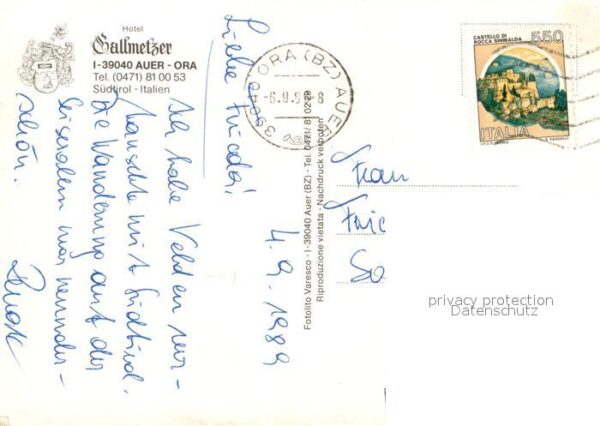 Hotel
Gallmetzer
I-39040 AUER - ORA
Tel. (0471) 81 00 53
Südtirol - Italien
Liebe Fricda!
4.9.1989
Ich habe Velden ver-
tauscht mit Südtirol.
Die Wanderung auf der
Seiseralm war wunder-
schön.
Renate
Fotolito Varesco - I-39040 Auer (BZ) - Tel. 0471/ 8 10 2 29
Riproduzione vietata - Nachdruck verboten
39040 ORA (BZ) AUER
-6.9.8
CASTELLO DI
ROCCA SINIBALDA
550
ITALIA
Frau
Fric
So
privacy protection
Datenschutz